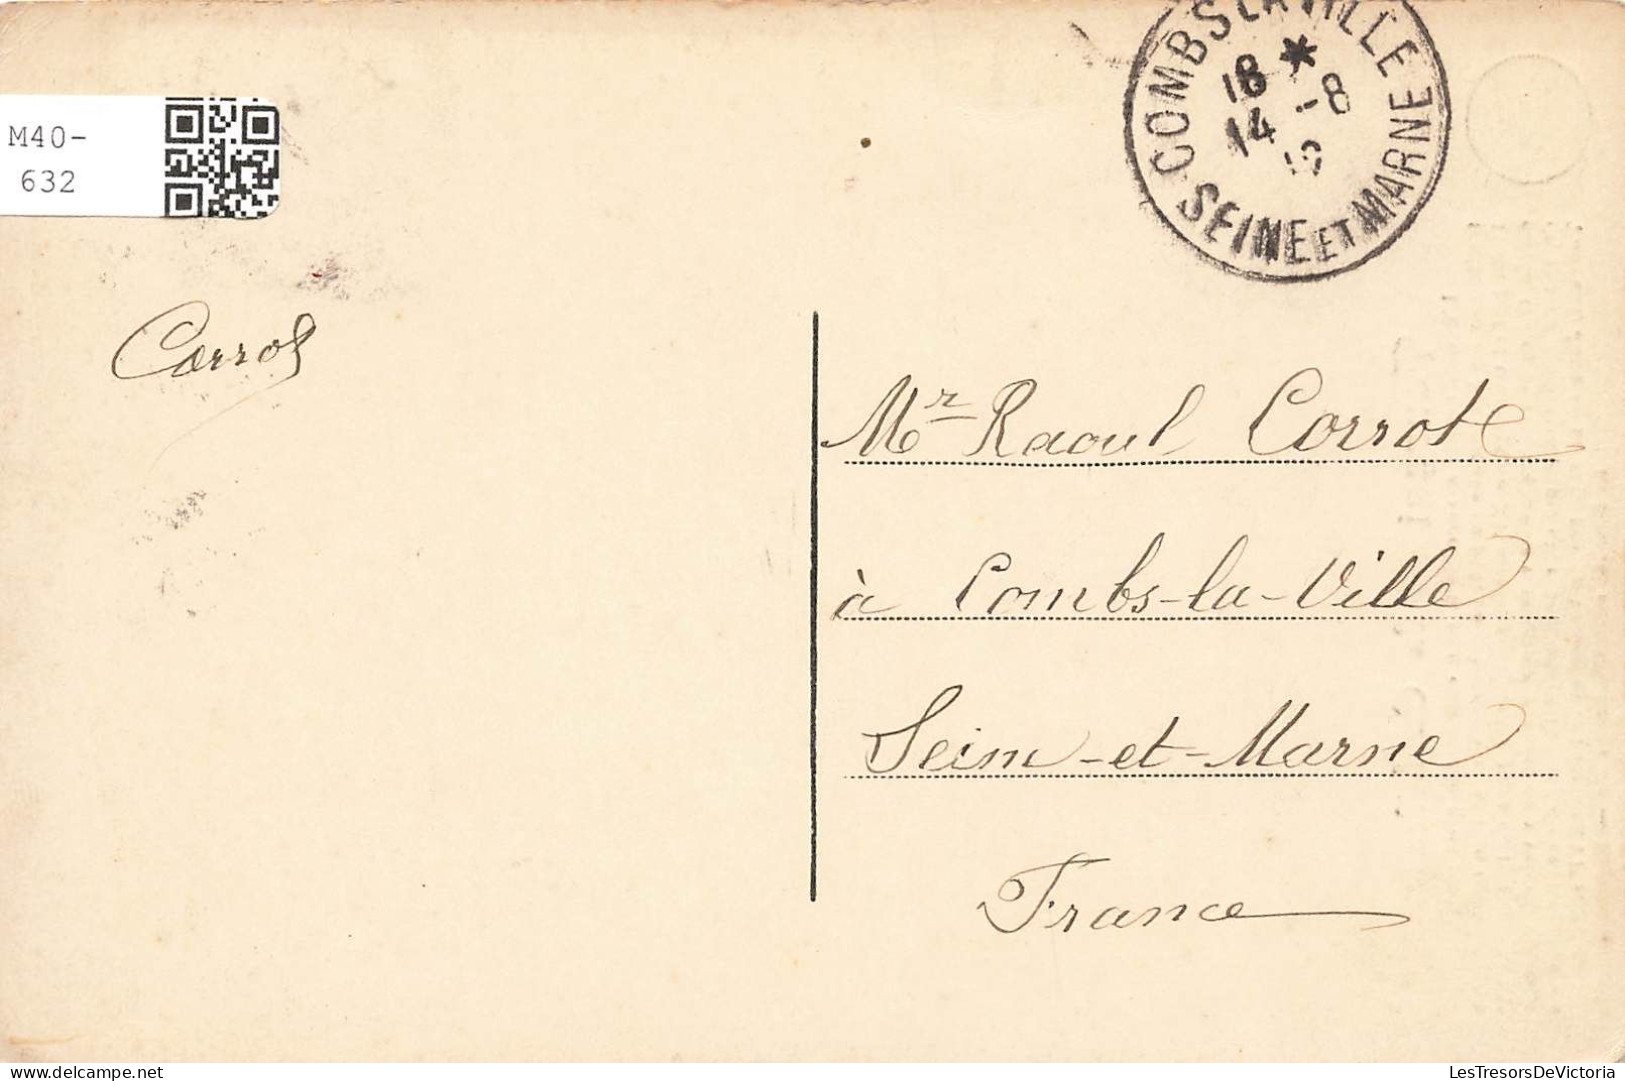 COMBS LA VILLE
18 *
14 -8
SEINE ET MARNE
M40-
632
Mr Raoul Corrot
à Combs-la-Ville
Seine-et-Marne
France
LesTresorsDeVictoria
delcampe.net